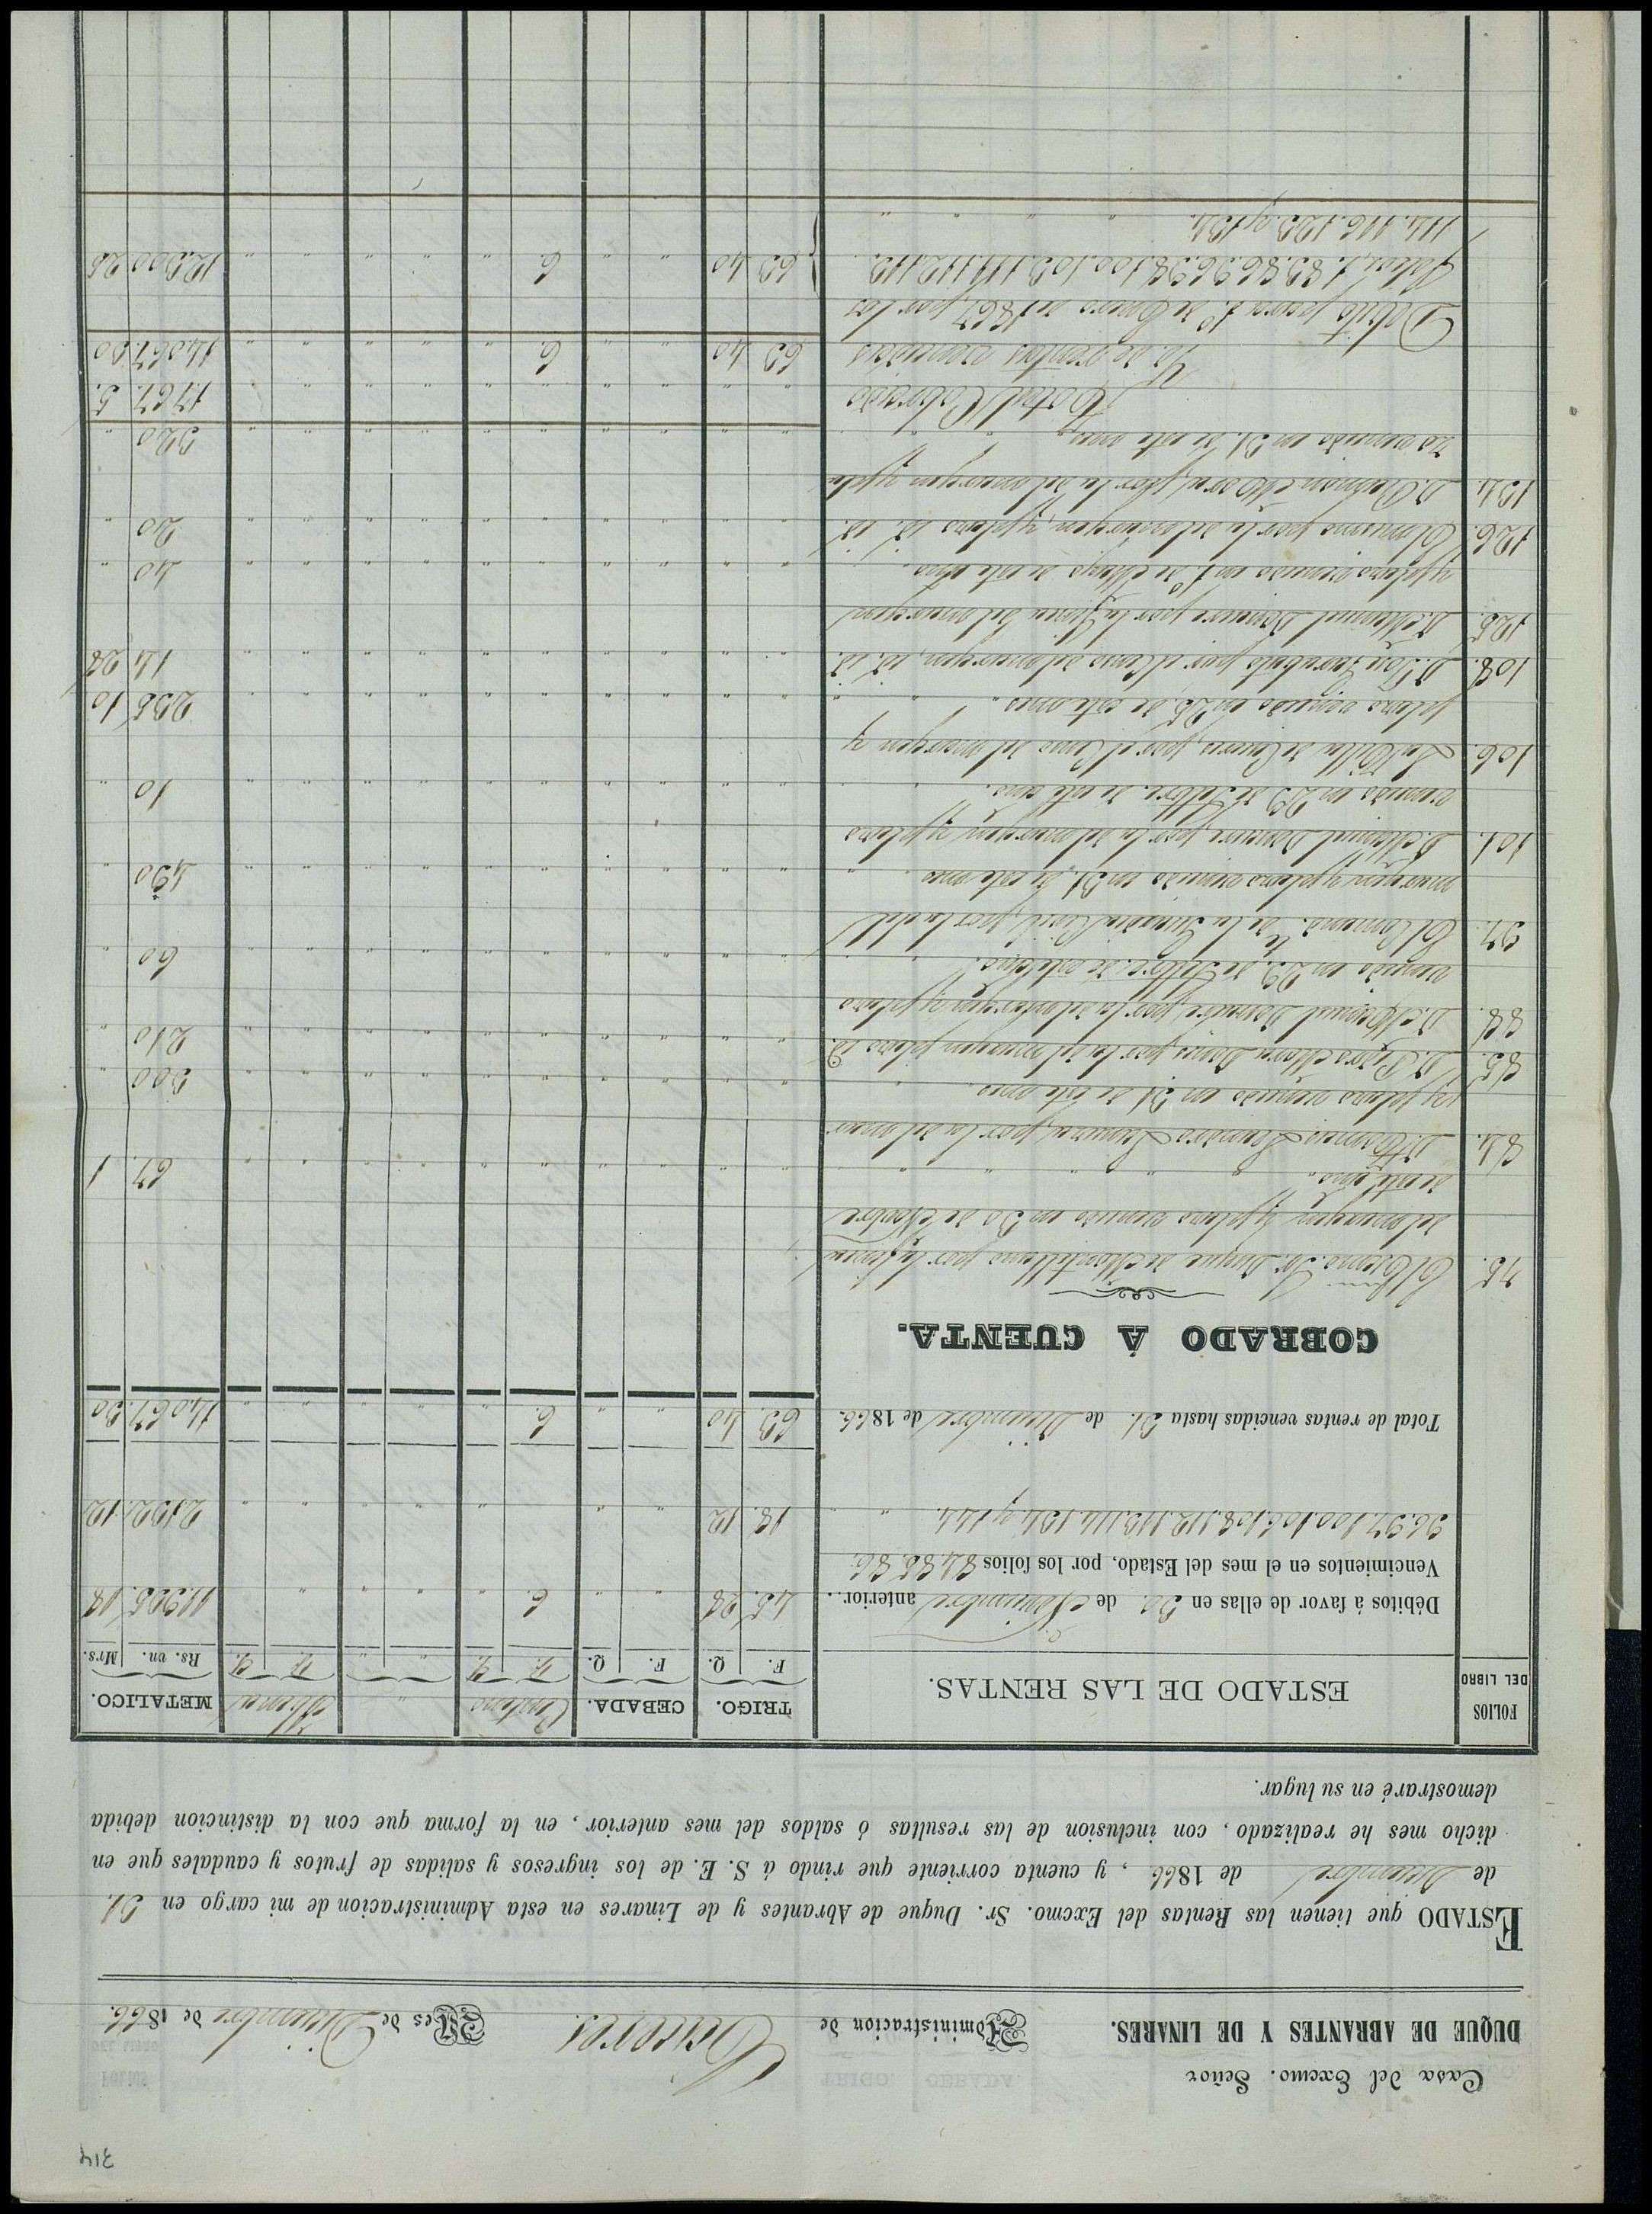 314
Casa del Excmo. Señor
DUQUE DE ABRANTES Y DE LINARES.
Administracion de Cáceres. Mes de Diciembre de 1866.
ESTADO que tienen las Rentas del Excmo. Sr. Duque de Abrantes y de Linares en esta Administracion de mi cargo en 31.
de Diciembre de 1866, y cuenta corriente que rindo á S. E. de los ingresos y salidas de frutos y caudales que en
dicho mes he realizado, con inclusion de las resultas ó saldos del mes anterior, en la forma que con la distincion debida
demostraré en su lugar.
FOLIOS DEL LIBRO ESTADO DE LAS RENTAS. TRIGO. CEBADA. Centeno " METALICO.
F. Q. F. Q. F. Q. " " F. Q. Rs. vn. Mrs.
Débitos á favor de ellas en 30. de Noviembre anterior.. 45. 28 " " 6. " " " " " 11.935. 18
Vencimientos en el mes del Estado, por los folios 84. 85. 86.
96. 97. 100. 106. 108. 112. 113. 114. 134. y 144. " 18. 12 " " " " " " " " 2.132. 12
Total de rentas vencidas hasta 31. de Diciembre de 1866. 63. 40 " " 6. " " " " " 14.067. 30
COBRADO Á CUENTA.
75. El Excmo. Sr. Duque de por la finca
del margen y plazo vencido en 30 de Novbre
de este año. " " " " " " " " " " 67. 1
84. Lucero por la del mar
y plazo vencido en 31 de este mes. " " " " " " " " " " 300 "
85. D. Pedro por la del margen plazo id. " " " " " " " " " " 210 "
88. D. Manuel por la del margen y plazo
vencido en 29. de Setbre. de este año. " " " " " " " " " " 60 "
97. El Comand.te de la Guardia Civil, por la del
margen y plazo vencido en 31. de este mes " " " " " " " " " " 490 "
101. D. Manuel por la del margen y plazo
vencido en 29 de Setbre. de este año. " " " " " " " " " " 10 "
106. La Villa de por el Censo del margen y
plazo vencido en 25. de este mes. " " " " " " " " " " 235 10
108. D. José por el Censo del margen, id. id. " " " " " " " " " " 14 28
125. D. Manuel por la finca del margen
y plazo vencido en 1.º de Mayo de este año. " " " " " " " " " " 40 "
126. El mismo por la del margen y plazo id. id. " " " " " " " " " " 20 "
134. D. Ramon por la del margen y pla
zo vencido en 31. de este mes. " " " " " " " " " " 320 "
Total Cobrado " " " " " " " " " " 1.767. 5.
Id. de rentas vencidas 63 40 " " 6. " " " " " 14.067 30
Débito para 1.º de Enero de 1867, por los
Folios, 1. 83. 86. 96. 98. 100. 103. 111. 112. 113. 63 40 " " 6. " " " " " 12.300 25
114. 116. 123. y 134. " " " "